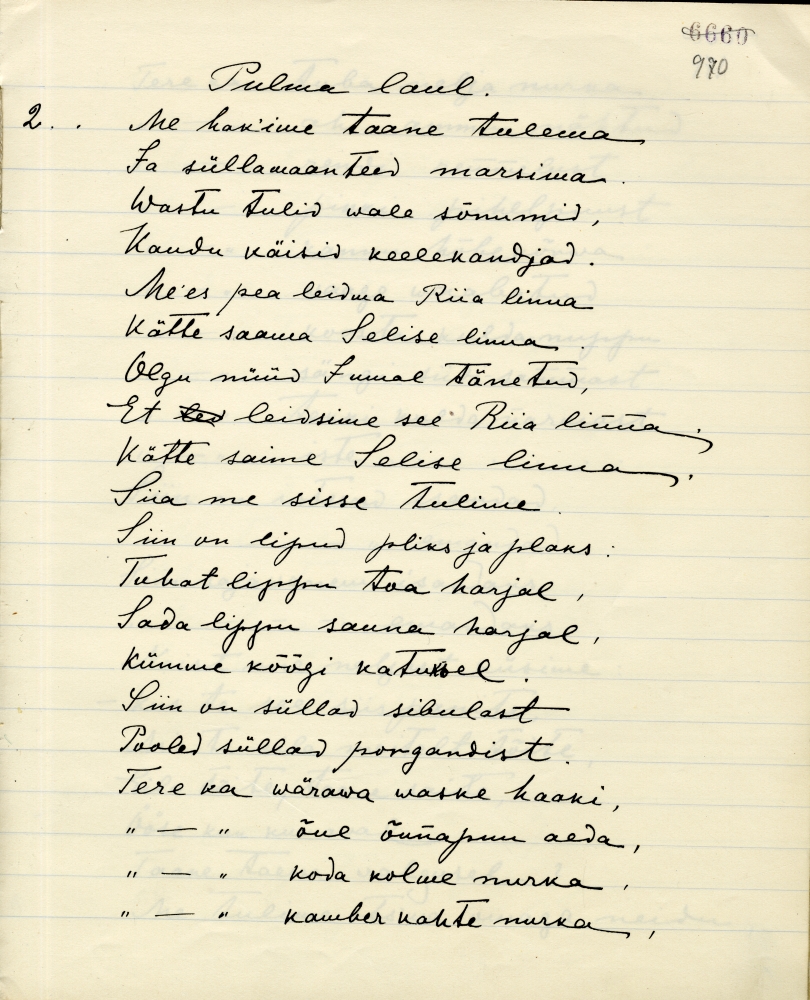 6660
970
Pulma laul.
2. . Me hak'ime taane tulema
Ja süllamaanteed marsima.
Wastu tulid wale sõnumid,
Kaudu käisid keelekandjad.
Me'es pea leidma Riia linna
Kätte saama Selise linna.
Olgu nüüd Jumal tänetud,
Et leidsime see Riia linna;
Kätte saime Selise linna,
Siia me sisse tulime.
Siin on lipud pliks ja plaks:
Tuhat lippu toa harjal,
Sada lippu sauna harjal,
Kümme köögi katuksel.
Siin on süllad sibulast
Pooled süllad porgandist.
Tere ka wärawa waske haaki,
" — " õue õunapuu aeda,
" — " koda kolme nurka,
" — " kamber kahte nurka,